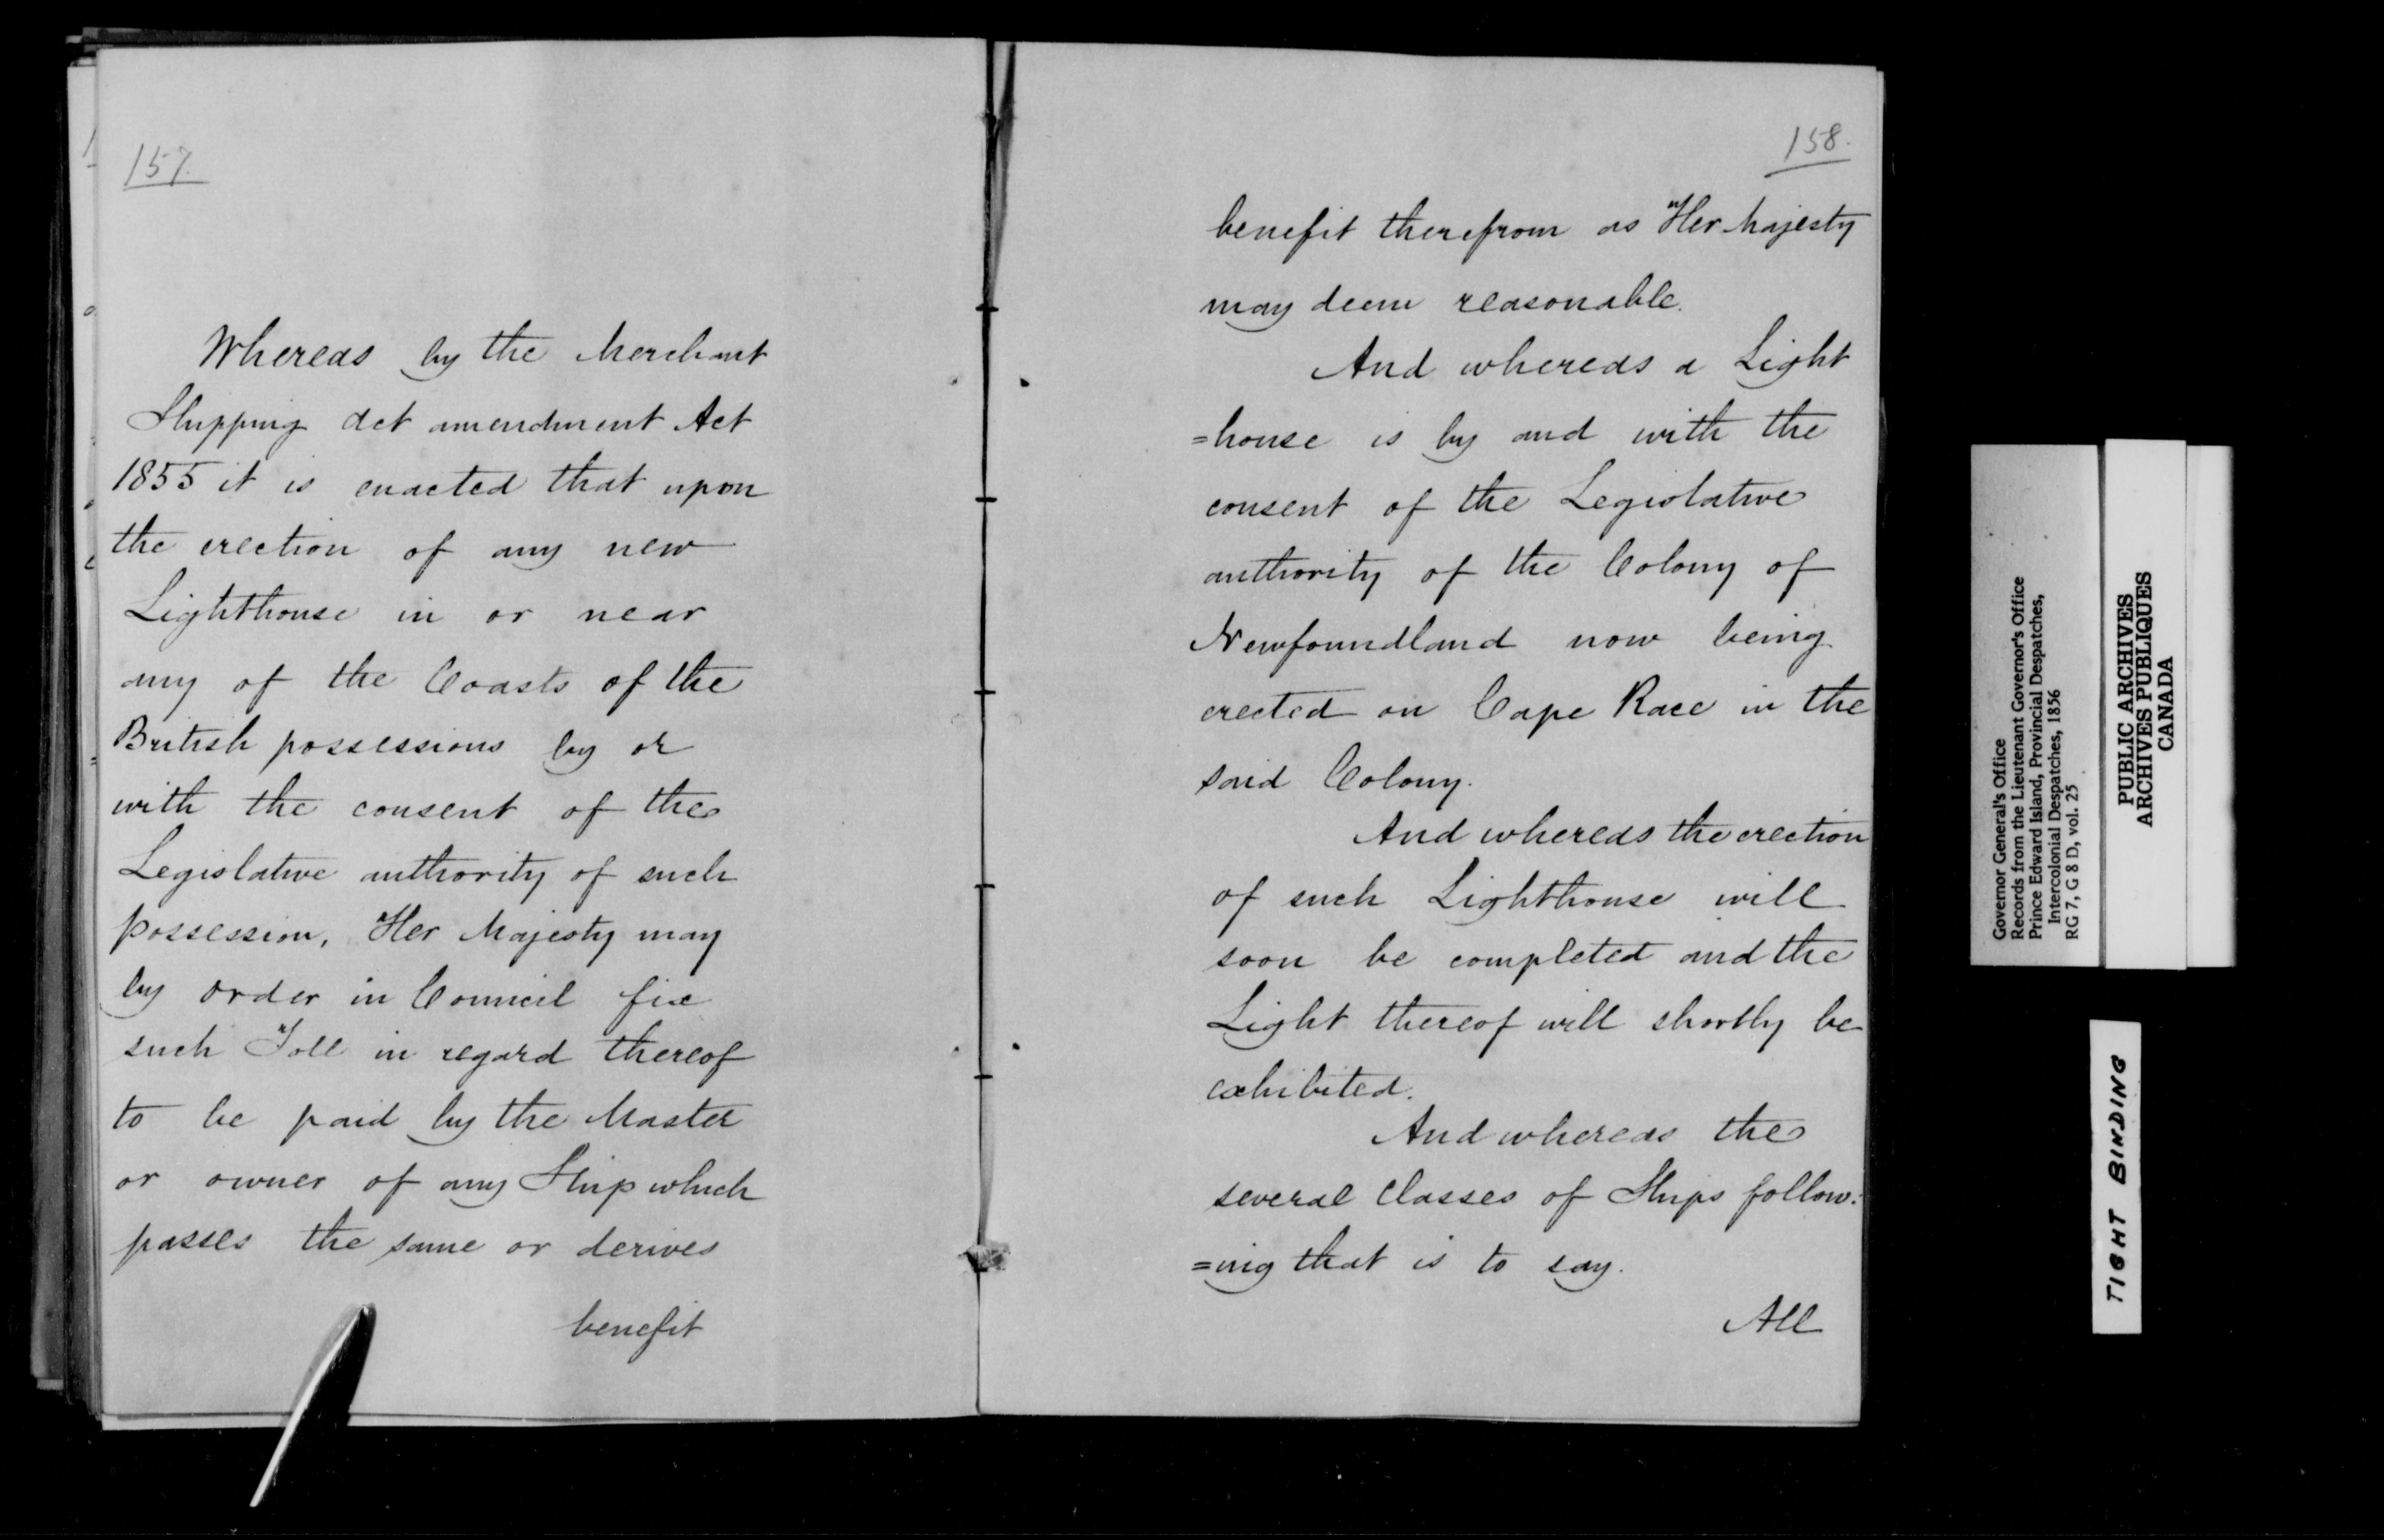 157.
Whereas by the Merchant
Shipping Act amendment Act
1855 it is enacted that upon
the erection of any new
Lighthouse in or near
any of the Coasts of the
British possessions by or
with the consent of the
Legislative authority of such
possession, Her Majesty may
by order in Council fix
such Toll in regard thereof
to be paid by the Master
or owner of any Ship which
passes the same or derives
benefit
158.
benefit therefrom as Her Majesty
may deem reasonable.
And whereas a Light
=house is by and with the
consent of the Legislative
authority of the Colony of
Newfoundland now being
erected on Cape Race in the
said Colony.
And whereas the erection
of such Lighthouse will
soon be completed and the
Light thereof will shortly be
exhibited.
And whereas the
several Classes of Ships follow=
=ing that is to say.
All
Governor General's Office
Records from the Lieutenant Governor's Office
Prince Edward Island, Provincial Despatches,
Intercolonial Despatches, 1856
RG 7, G 8 D, vol. 25
PUBLIC ARCHIVES
ARCHIVES PUBLIQUES
CANADA
TIGHT BINDING